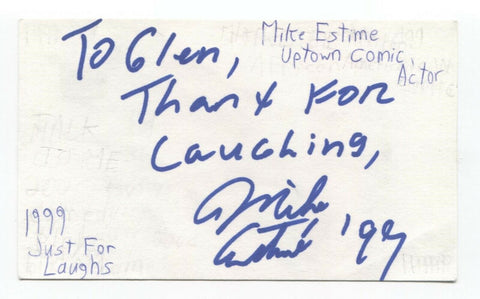 Mike Estime
Uptown Comic,
Actor
To Glen,
Thanx For
Laughing,
Mike
Estimé '99
1999
Just For
Laughs